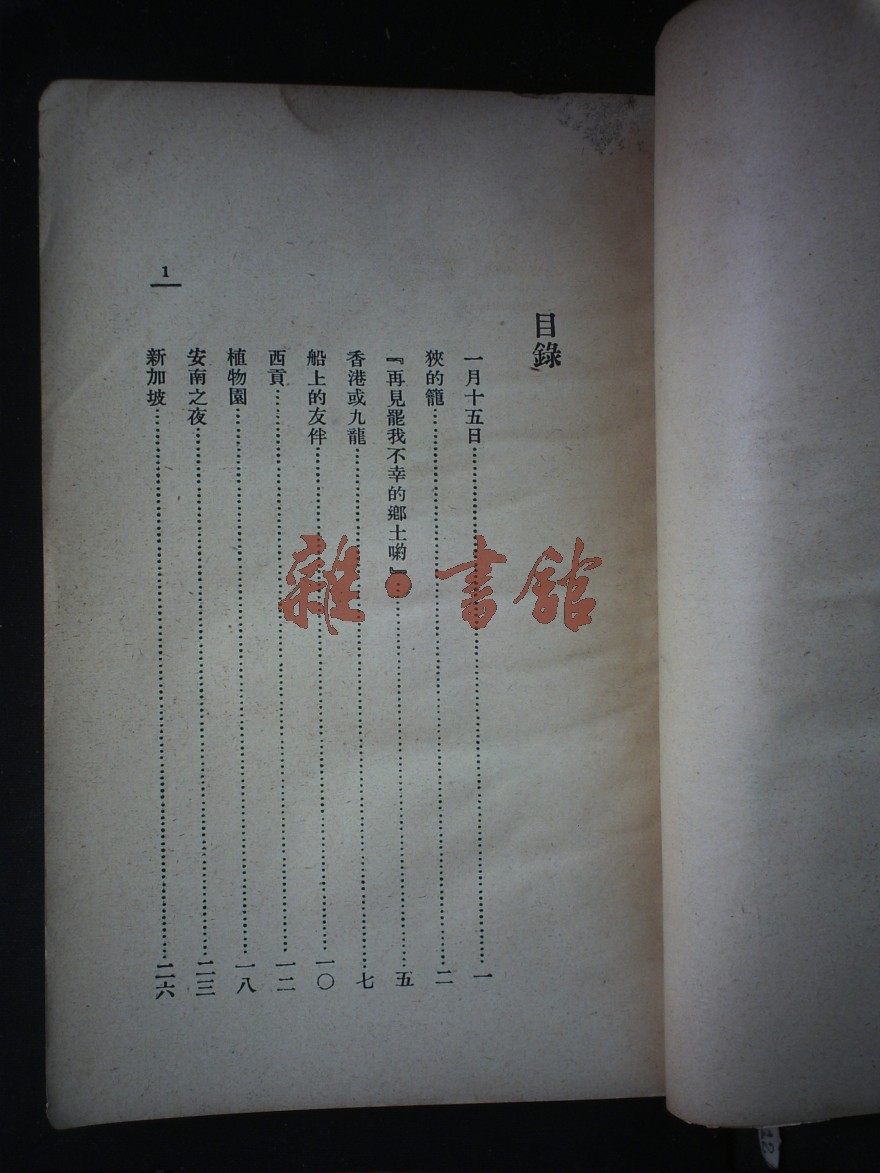 目錄
一月十五日……一
狹的籠……二
『再見罷我不幸的鄉土喲』……五
香港或九龍……七
船上的友伴……一〇
西貢……一二
植物園……一八
安南之夜……二三
新加坡……二六
1
雜·書館
12